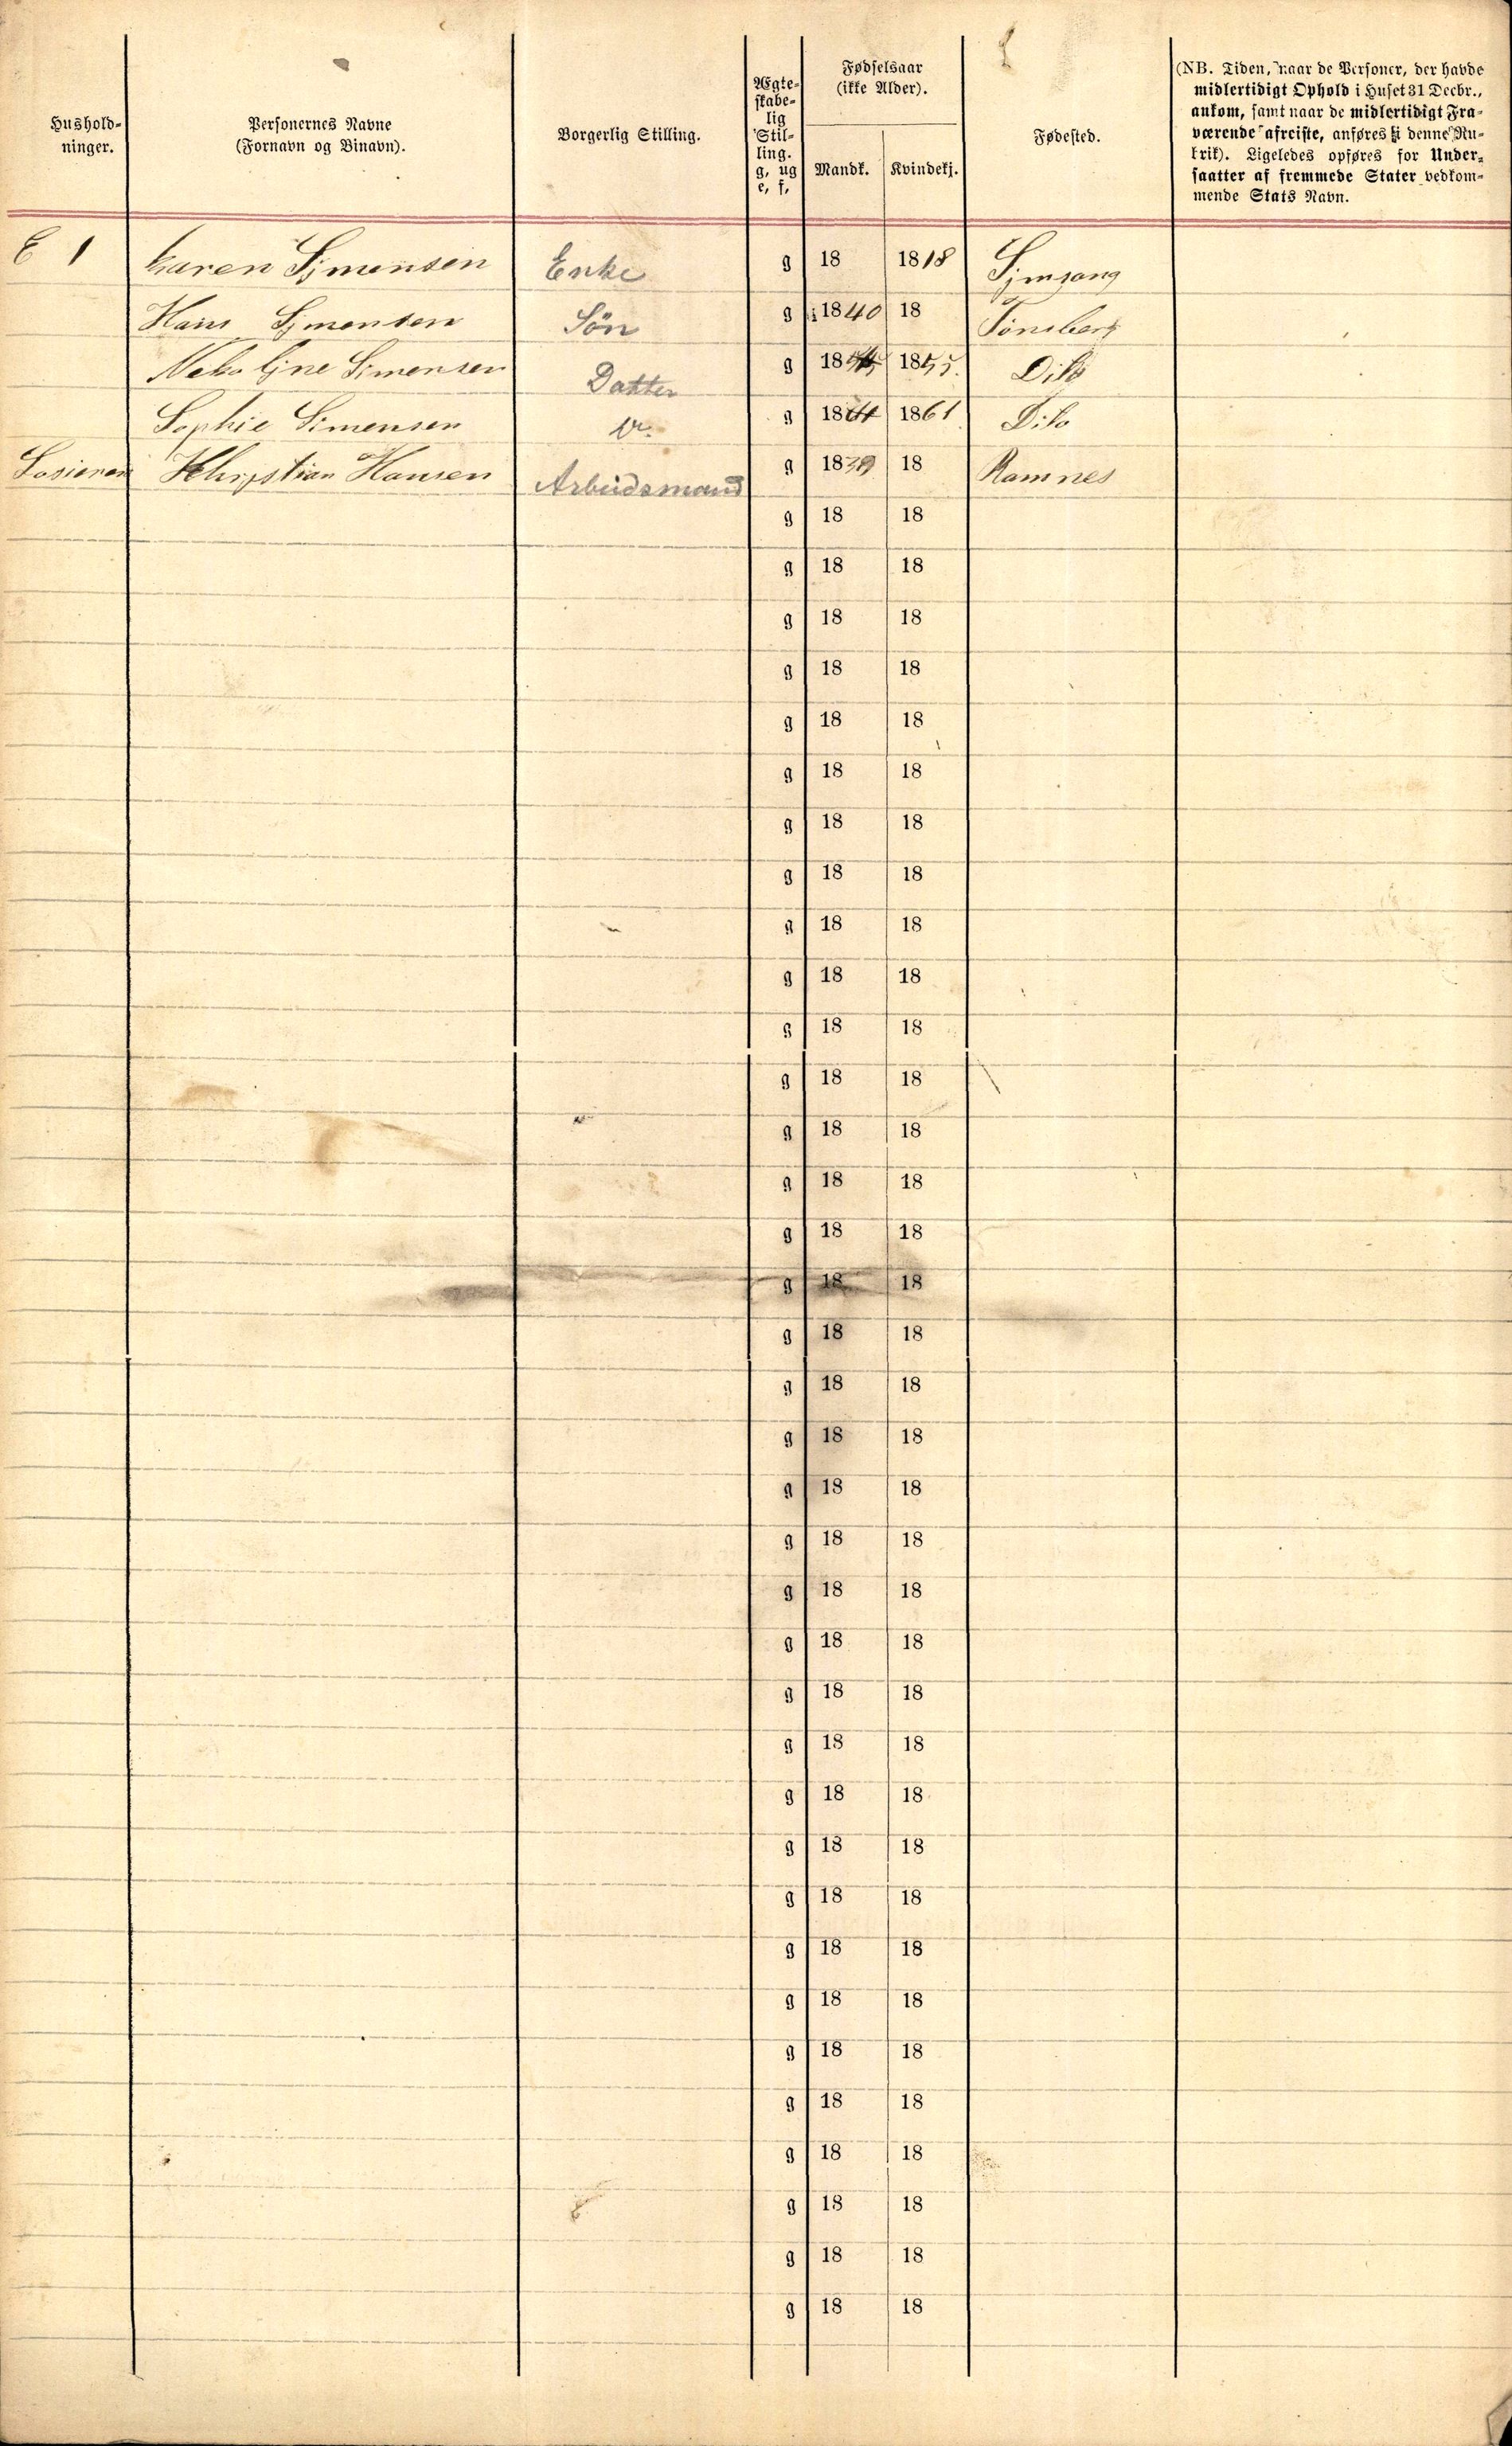 Hushold-
ninger.
Personernes Navne
(Fornavn og Binavn).
Borgerlig Stilling.
Ægte-
skabe-
lig
Stil-
ling.
g, ug
e, f,
Fødselsaar
(ikke Alder).
Mandk. Kvindekj.
Fødested.
(NB. Tiden, naar de Personer, der havde
midlertidigt Ophold i Huset 31 Decbr.,
ankom, samt naar de midlertidigt Fra-
værende afreiste, anføres i denne Ru-
brik). Ligeledes opføres for Under-
saatter af fremmede Stater vedkom-
mende Stats Navn.
1 Karen Simensen Enke g 18 1818
Hans Simensen Sön g 1840 18 Tönsberg
Simensen Datter g 18 1855 Dito
Sophie Simensen g 18 1861 Dito
Khristian Hansen Arbeidsmand g 1839 18 Ramnes
g 18 18
g 18 18
g 18 18
g 18 18
g 18 18
g 18 18
g 18 18
g 18 18
g 18 18
g 18 18
g 18 18
g 18 18
g 18 18
g 18 18
g 18 18
g 18 18
g 18 18
g 18 18
g 18 18
g 18 18
g 18 18
g 18 18
g 18 18
g 18 18
g 18 18
g 18 18
g 18 18
g 18 18
g 18 18
g 18 18
g 18 18
g 18 18
g 18 18
g 18 18
g 18 18
g 18 18